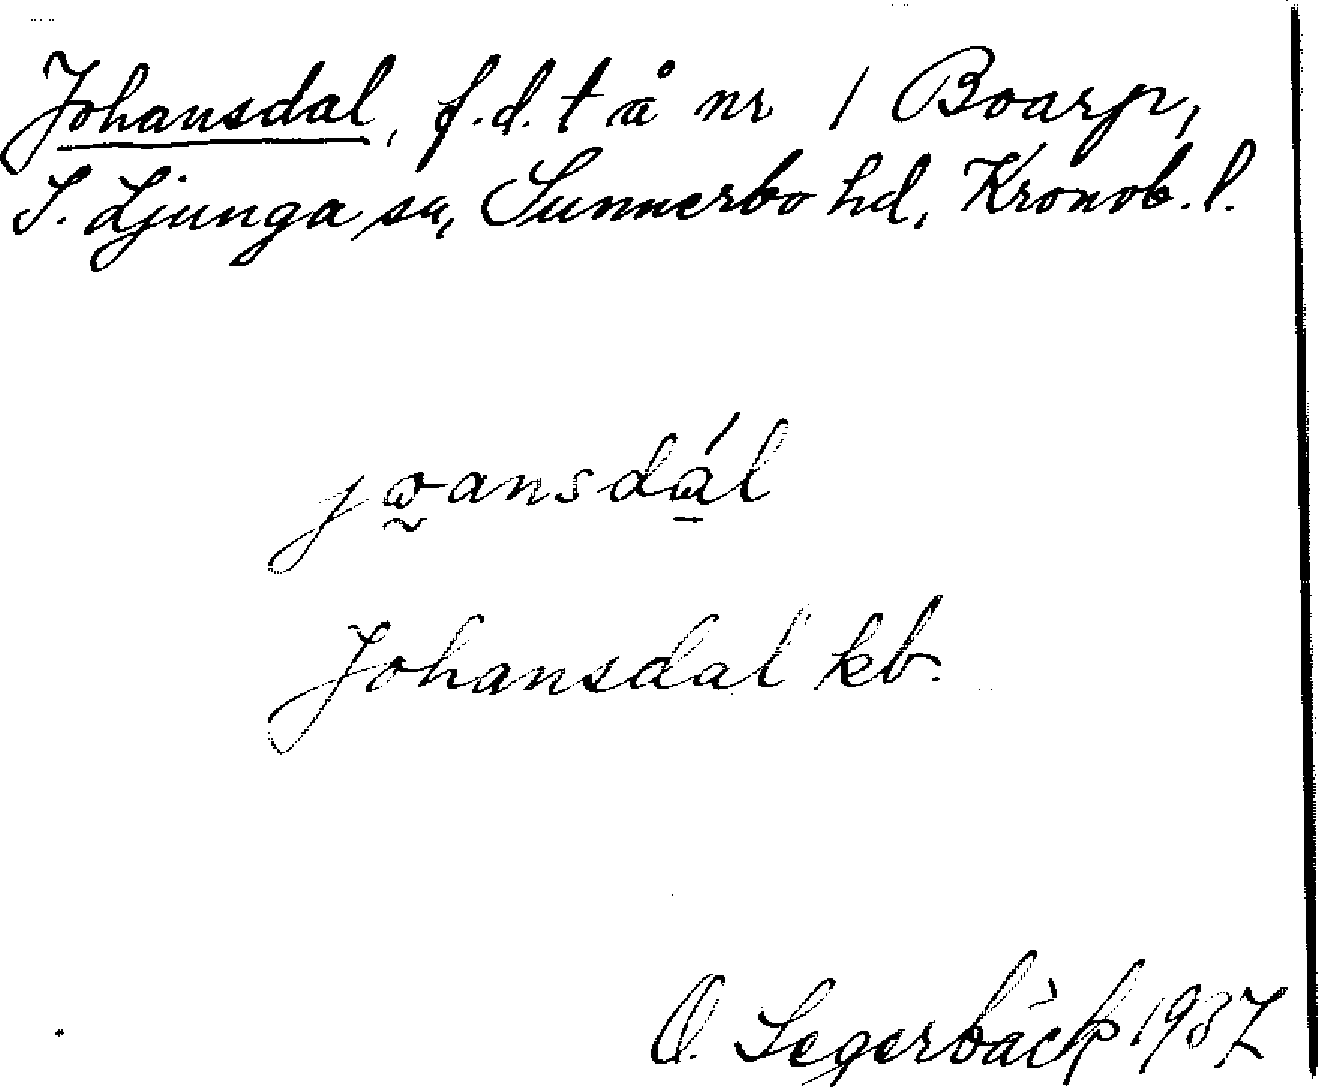 Johansdal, f.d. t å nr 1 Boarp,
S. Ljunga sn, Sunnerbo hd, Kronob. l.
Johansdal kb.
O. Segerbäck 1937